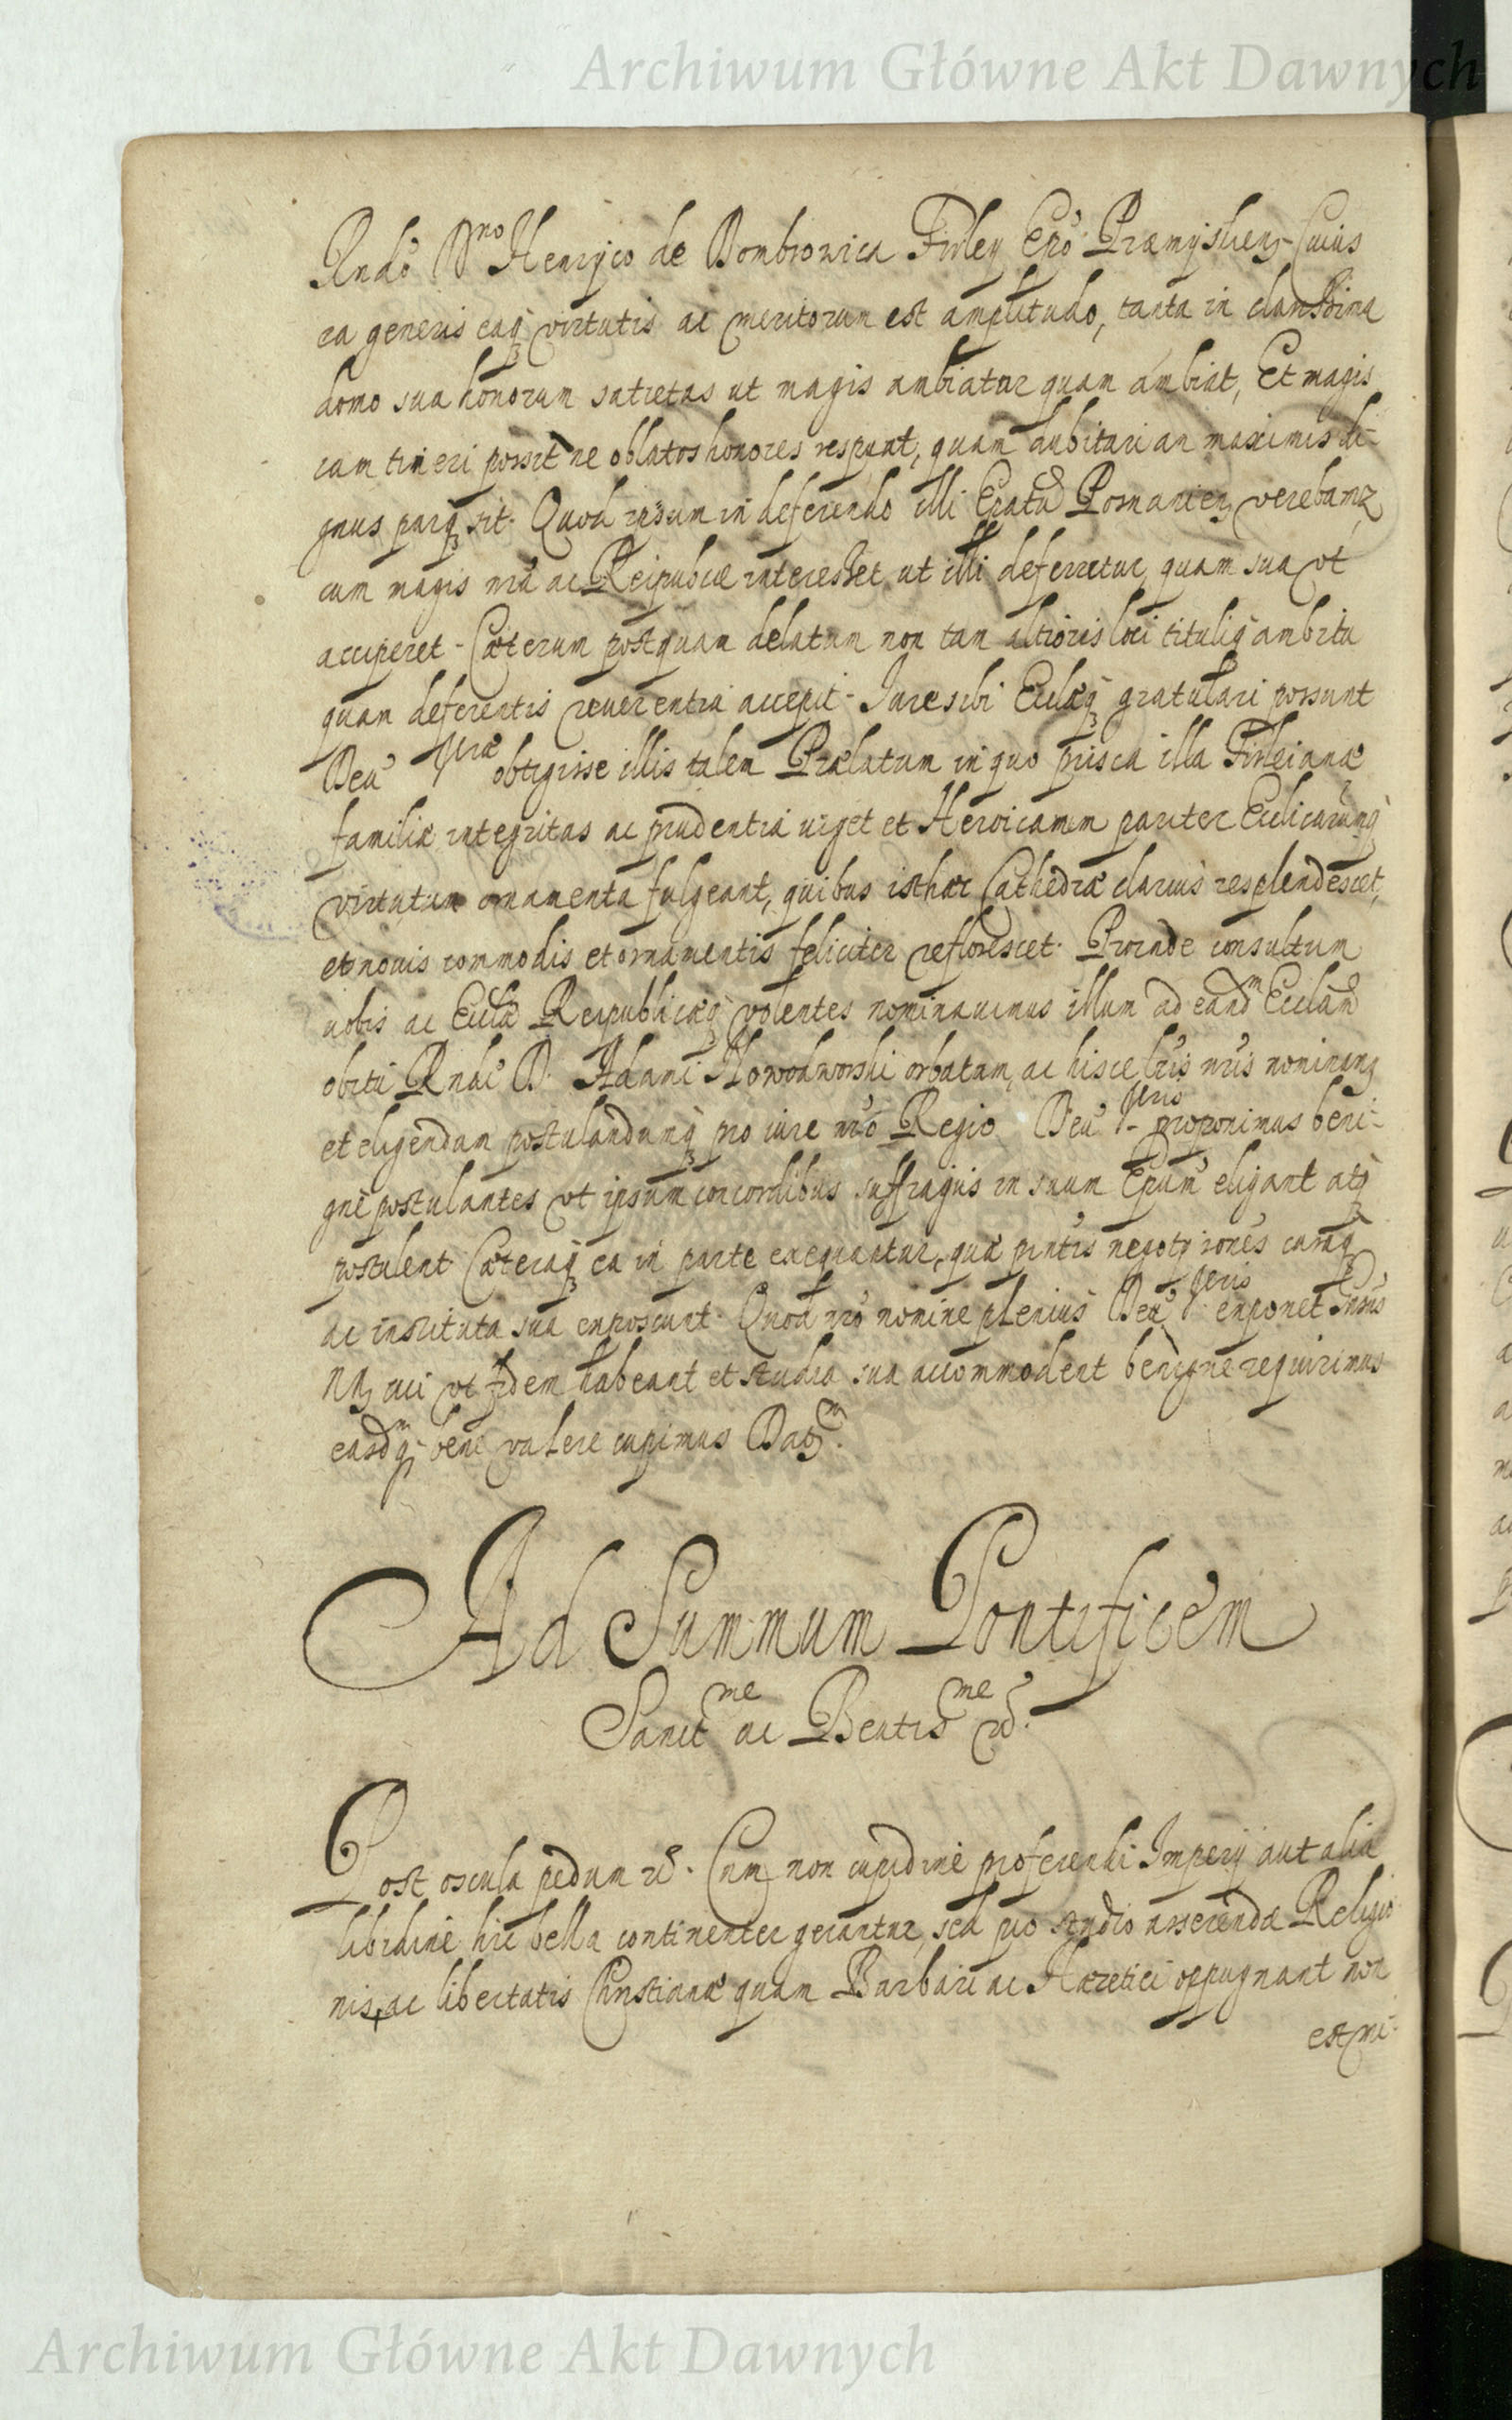 Archiwum Główne Akt Dawnych
Rndo Dno Henryco de Dombrowica Firley Epo Præmyslien Cuius
ea generis eaq virtutis ac meritorum est amplitudo, tanta in clarissima
domo sua honorum satietas ut magis ambiatur quam ambiat, Et magis
iam timeri possit ne oblatos honores respuat, quam dubitari an maximis di-
gnus parq sit. Quod ipsum in deferendo illi Epatu Posnanien verebamur
cum magis nra ac Reipublicæ interesset ut illi deferretur quam sua ut
acciperet - Cæterum postquam delatum non tam altioris loci tituliq ambitu
quam deferentis reverentia accepit - Iure sibi Eclæq gratulari possunt
Deu Vræ obtigisse illis talem Prælatum in quo prisca illa Firleianæ
familiæ integritas ac prudentia viget et Heroicarum pariter Eclicarumq
virtutum ornamenta fulgeant, quibus isthæc Cathedra clarius resplendescet,
et novis commodis et ornamentis feliciter reflorescet. Proinde consultum
vobis ac Eclæ Reipublicæq volentes nominavimus illum ad eandm Ecclam
obitu Rndi D. Adami Nowodworski orbatam, ac hisce lris nris nominam
et eligendum postulandumq pro iure nro Regio Deu Vris proponimus beni-
gne postulantes ut ipsum concordibus suffragiis in suum Epum eligant atq
postulent Cæteraq ea in parte exequantur, quæ pntis negotij rones curaq
ac instituta sua exposcunt. Quod nro nomine plenius Deu Vris exponet Intius
Nr cui ut fidem habeant et studia sua accommodent benigne requirimus
easdmq bene valere cupimus Datm.
Ad Summum Pontificem
Sanctme ac Beatisme rd.
Post oscula pedum rd. Cum non cupidine proferendi Imperij aut alia
libidine hic bella continenter gerantur, sed pio studio asserendæ Religio
nis, ac libertatis Christianæ quam Barbari ac Hæretici oppugnant non
est mi-
Archiwum Główne Akt Dawnych